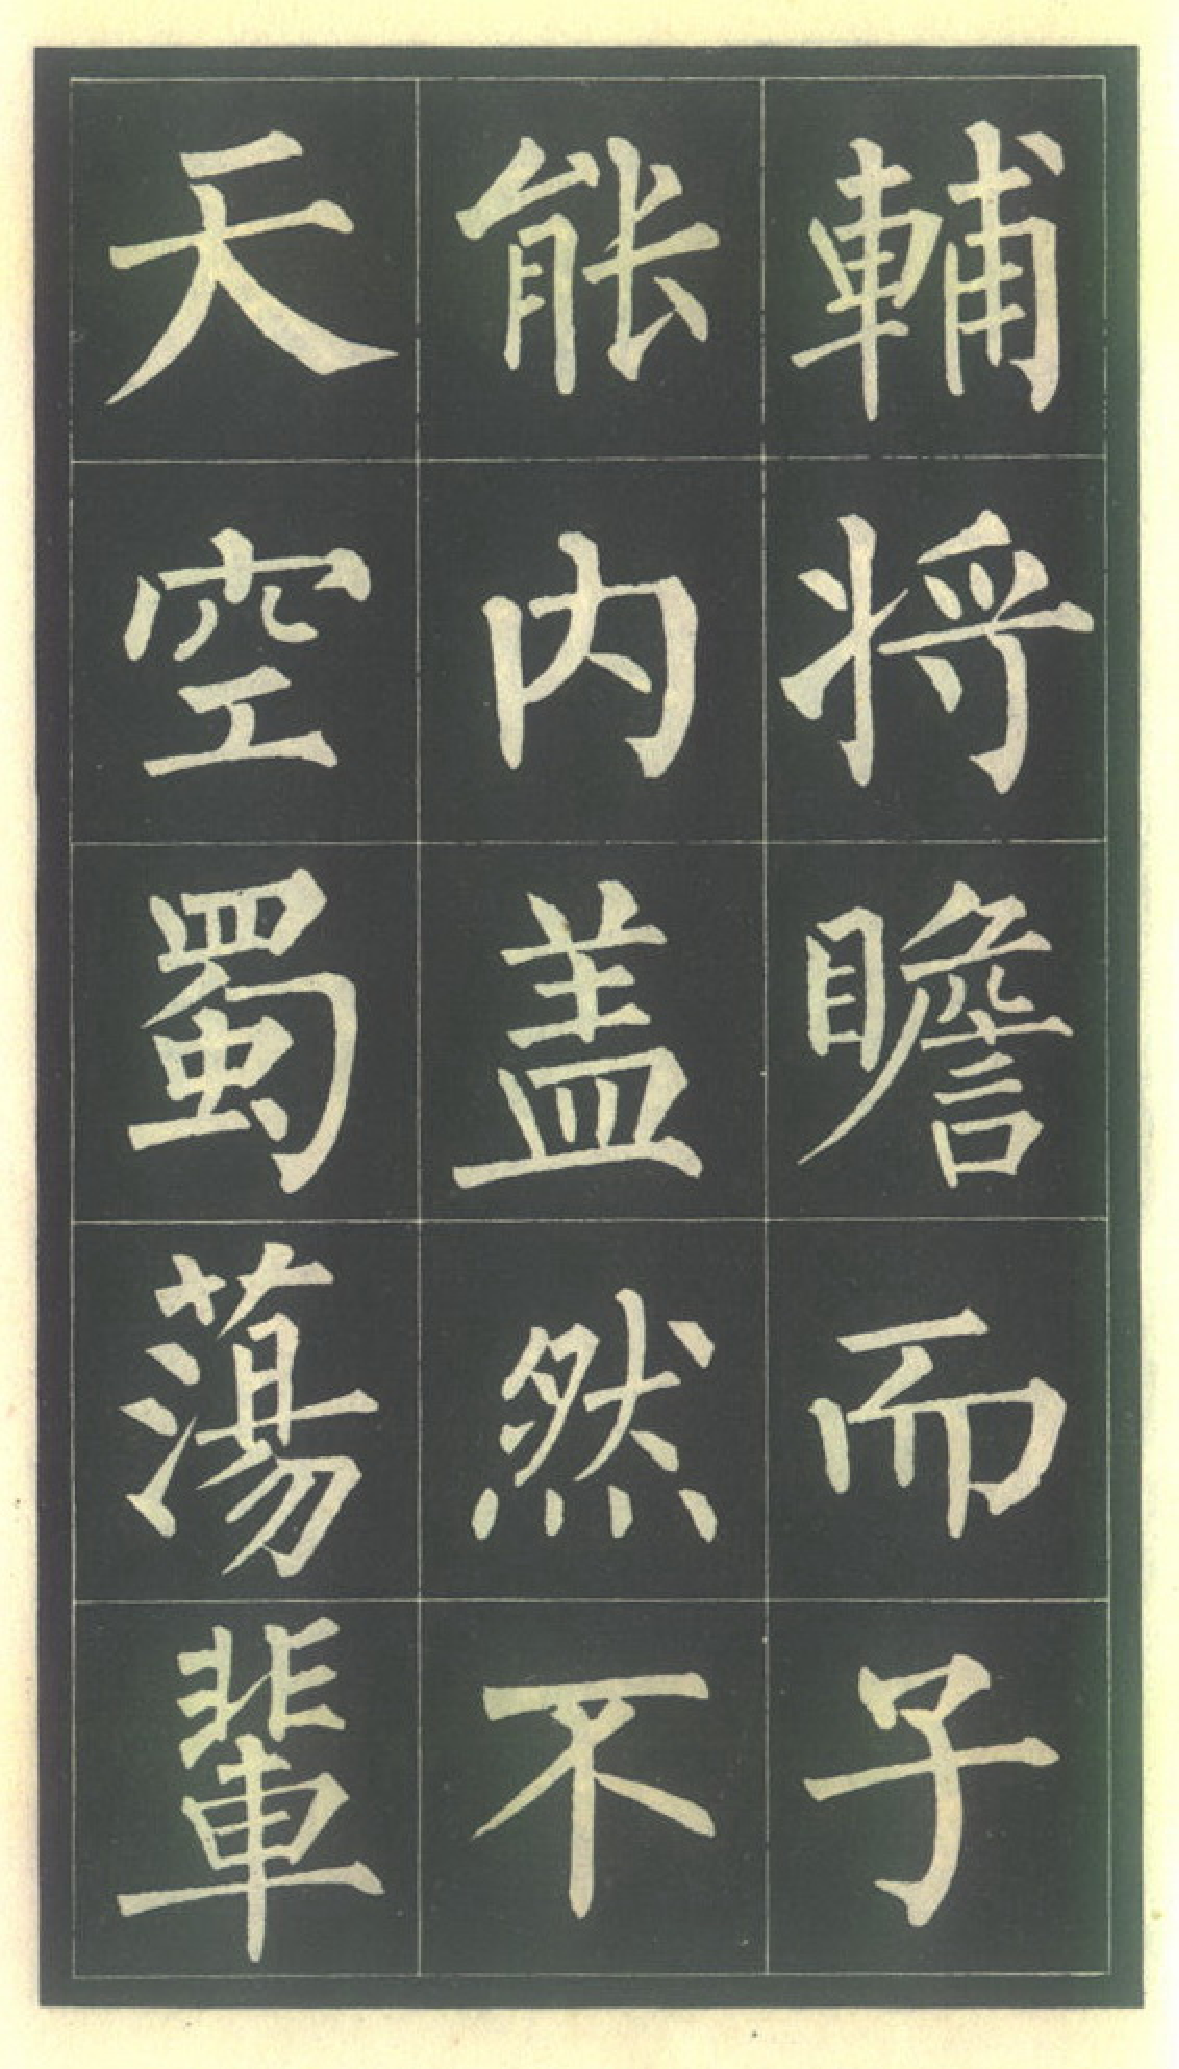 輔將瞻而子
能内盖然不
天空蜀蕩輩